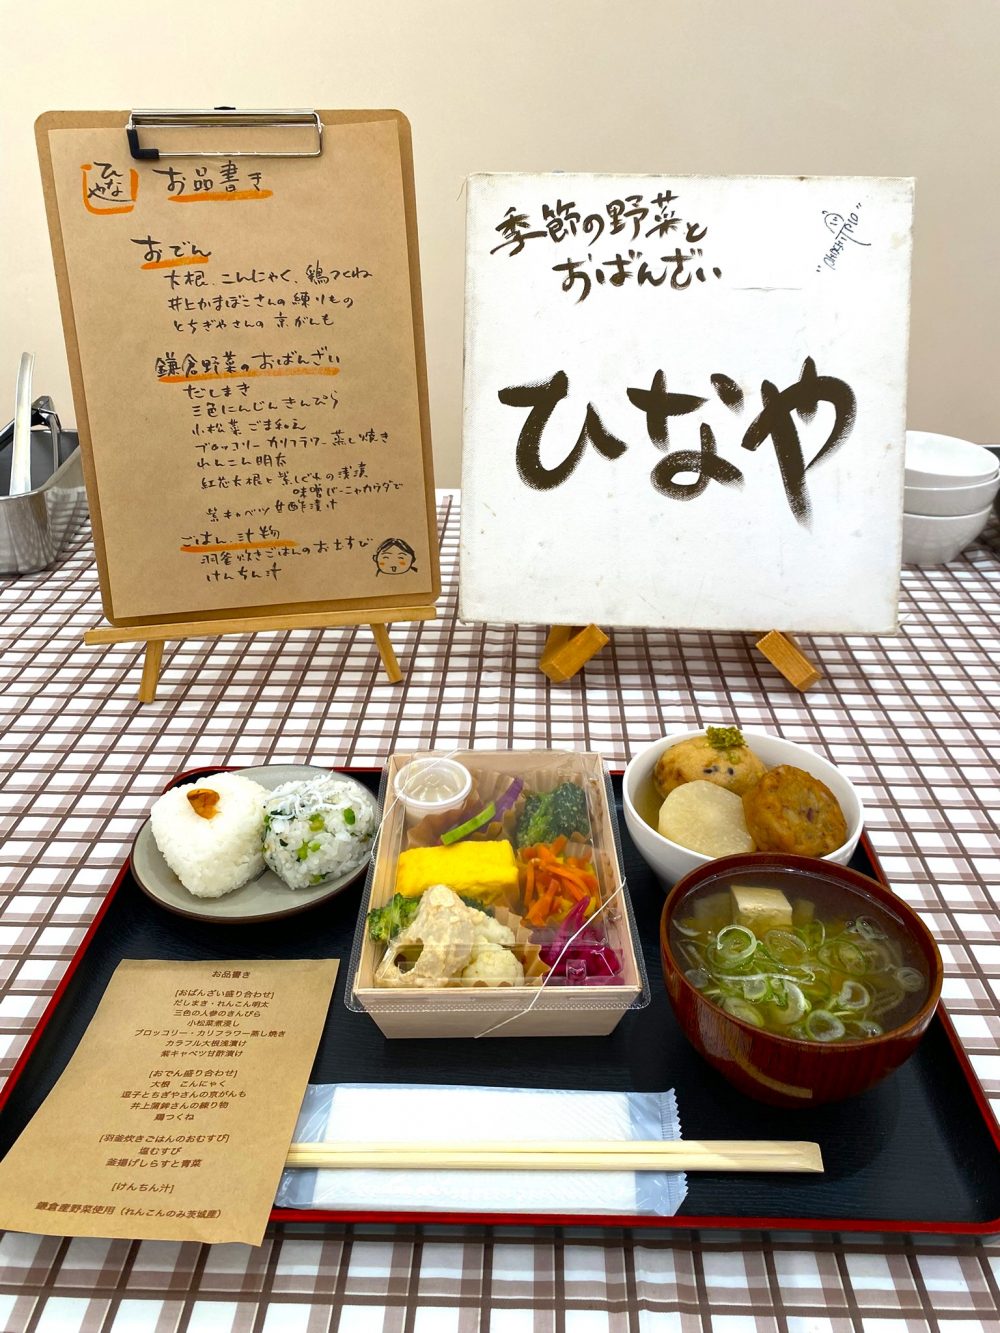 ひなや
お品書き
おでん
大根、こんにゃく、鶏つくね
井上かまぼこさんの練りもの
とちぎやさんの京がんも
鎌倉野菜のおばんざい
だしまき
三色にんじんきんぴら
小松菜ごま和え
ブロッコリーカリフラワー蒸し焼き
れんこん明太
紅芯大根と紫しぐれの浅漬
味噌バーニャカウダで
紫キャベツ甘酢漬け
ごはん、汁物
羽釜炊きごはんのおむすび
けんちん汁
季節の野菜と
おばんざい
ひなや
お品書き
[おばんざい盛り合わせ]
だしまき・れんこん明太
三色の人参のきんぴら
小松菜煮浸し
ブロッコリー・カリフラワー蒸し焼き
カラフル大根浅漬け
紫キャベツ甘酢漬け
[おでん盛り合わせ]
大根 こんにゃく
逗子とちぎやさんの京がんも
井上蒲鉾さんの練り物
鶏つくね
[羽釜炊きごはんのおむすび]
塩むすび
釜揚げしらすと青菜
[けんちん汁]
鎌倉産野菜使用(れんこんのみ茨城産)